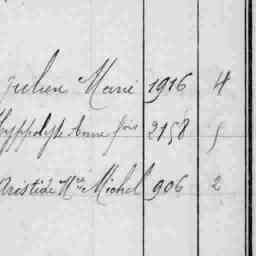 Julien Marie 1916 4
Hyppolyte Anne fois 2158 5
Aristide Mie Michel 906 2